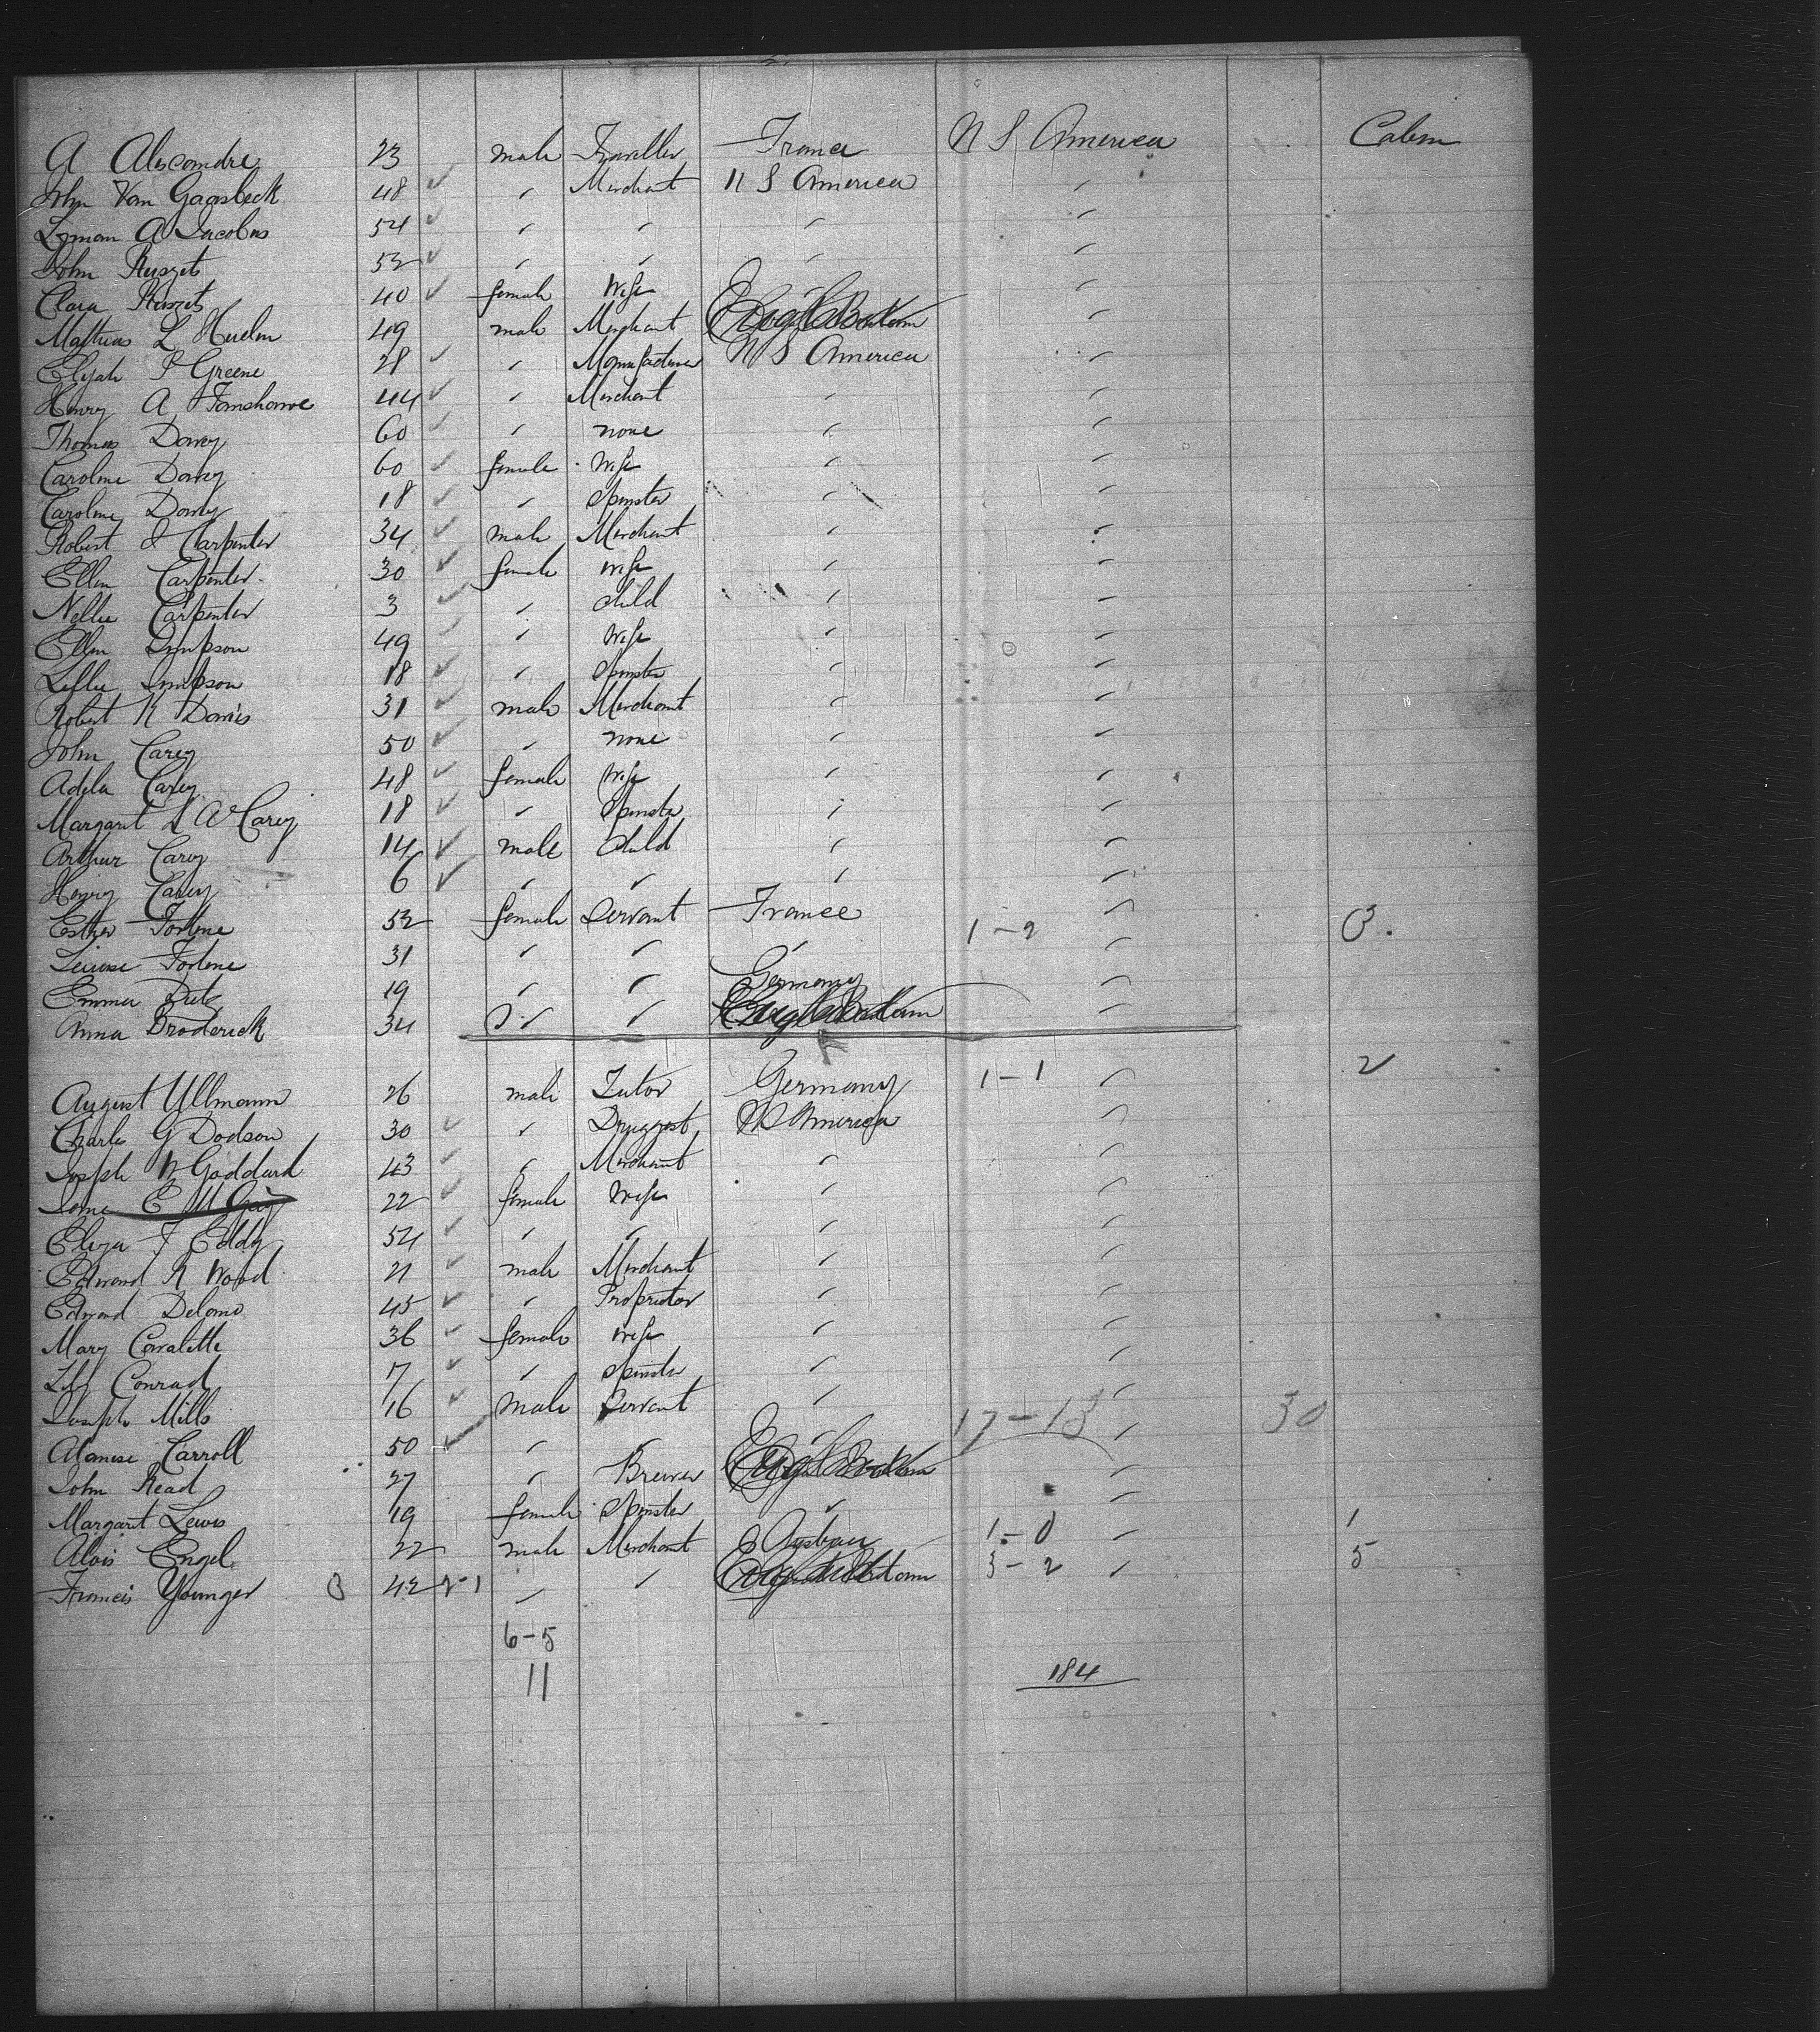 A Alexandre 23 male Traveller France U S America Cabin
John Van Gaasbeck 48 ✓ " Merchant U S America "
Lyman A Jacobus 54 ✓ " " " "
John 52 ✓ " " " "
Clara 40 ✓ female Wife " "
Mathias L 49 male Merchant "
Elijah P Greene 28 ✓ " Manufacturer U S America "
Henry A 44 ✓ " Merchant " "
Thomas 60 ✓ " none " "
Caroline 60 ✓ female Wife " "
Caroline 18 ✓ " Spinster " "
Robert J Carpenter 34 ✓ male Merchant " "
Ellen Carpenter 30 ✓ female Wife " "
Nellie Carpenter 3 ✓ " Child " "
Ellen Simpson 49 ✓ " Wife " "
Lillie Simpson 18 ✓ " Spinster " "
Robert K Davis 31 ✓ male Merchant " "
John Carey 50 ✓ " none " "
Adela Carey 48 ✓ female Wife " "
Margaret L A Carey 18 ✓ " Spinster " "
Arthur Carey 14 ✓ male Child " "
Henry Carey 6 ✓ " " " "
Esther Fortene 52 female Servant France 1-2 " 3.
Louise Fortene 31 " " " "
Emma 19 " " Germany "
Anna Broderick 34 " " "
August Ullmann 26 male Tutor Germany 1-1 " 2
Charles G Dodson 30 ✓ " Druggist U S America "
Joseph W Goddard 43 ✓ " Merchant " "
22 ✓ female Wife " "
Eliza F Eddy 54 ✓ " " " "
Edward R Wood 21 ✓ male Merchant " "
Edmond 45 ✓ " Proprietor " "
Mary 36 ✓ female Wife " "
Conrad 17 ✓ " Spinster " "
Joseph Mills 16 ✓ male Servant " "
Carroll 50 ✓ " " " 17-13 " 30
John Read 27 " Brewer "
Margaret Lewis 19 female Spinster " "
Alois Engel 22 male Merchant Austria 1-0 " 1
Francis Younger 3 42 2-1 " " 3-2 " 5
6-5
11 184